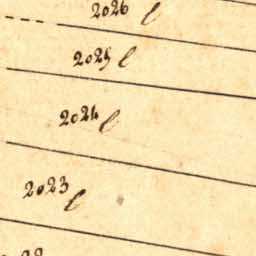 2026 ℓ
2025 ℓ
2024 ℓ
2023 ℓ